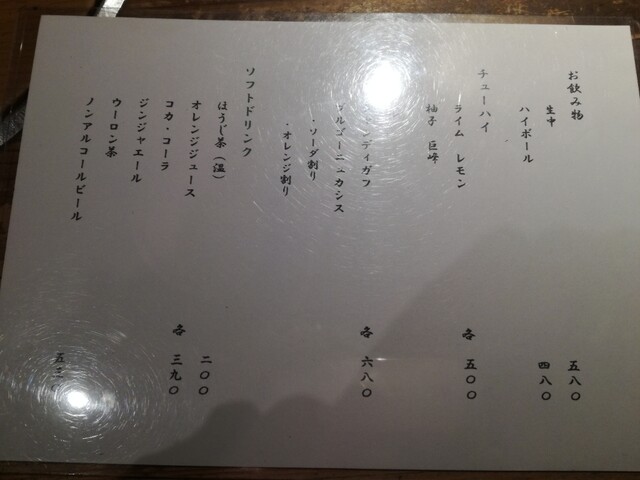 お飲み物
生中 五八〇
ハイボール 四八〇
チューハイ
ライム レモン 各 五〇〇
柚子 巨峰
ンディガフ 各 六八〇
ブルゴーニュカシス
・ソーダ割り
・オレンジ割り
ソフトドリンク
ほうじ茶（温） 二〇〇
オレンジジュース 各 三九〇
コカ・コーラ
ジンジャエール
ウーロン茶
ノンアルコールビール 五